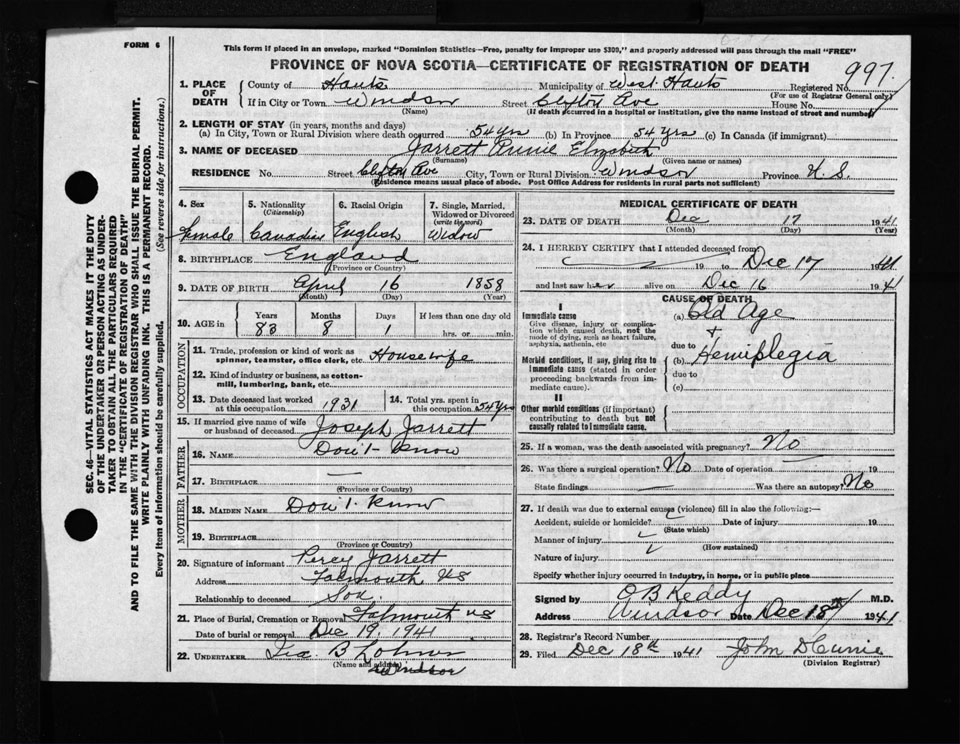 FORM 6
This form if placed in an envelope, marked "Dominion Statistics—Free, penalty for improper use $300," and properly addressed will pass through the mail "FREE"
PROVINCE OF NOVA SCOTIA—CERTIFICATE OF REGISTRATION OF DEATH
997
1. PLACE OF DEATH
County of Hants Municipality of West Hants Registered No.
(For use of Registrar General only)
If in City or Town Windsor Street Clifton Ave House No.
(Name) (If death occurred in a hospital or institution, give the name instead of street and number)
2. LENGTH OF STAY (in years, months and days)
(a) In City, Town or Rural Division where death occurred 54 yrs (b) In Province 54 yrs (c) In Canada (if immigrant)
3. NAME OF DECEASED Jarrett Annie Elizabeth
(Surname) (Given name or names)
RESIDENCE No. Street Clifton Ave City, Town or Rural Division Windsor Province N. S.
(Residence means usual place of abode. Post Office Address for residents in rural parts not sufficient)
4. Sex 5. Nationality (Citizenship) 6. Racial Origin 7. Single, Married, Widowed or Divorced (write the word)
female Canadian English Widow
8. BIRTHPLACE England
(Province or Country)
9. DATE OF BIRTH April 16 1858
(Month) (Day) (Year)
10. AGE in Years Months Days If less than one day old
83 8 1 hrs. or min.
OCCUPATION
11. Trade, profession or kind of work as spinner, teamster, office clerk, etc. Housewife
12. Kind of industry or business, as cotton-mill, lumbering, bank, etc.
13. Date deceased last worked at this occupation 1931 14. Total yrs. spent in this occupation 54 yrs
15. If married give name of wife or husband of deceased Joseph Jarrett
FATHER
16. NAME Don't know
17. BIRTHPLACE —
(Province or Country)
MOTHER
18. MAIDEN NAME Don't know
19. BIRTHPLACE
(Province or Country)
20. Signature of informant Percy Jarrett
Address Falmouth NS
Relationship to deceased Son
21. Place of Burial, Cremation or Removal Falmouth NS
Date of burial or removal Dec 19, 1941
22. UNDERTAKER B
(Name and address) Windsor
MEDICAL CERTIFICATE OF DEATH
23. DATE OF DEATH Dec 17 1941
(Month) (Day) (Year)
24. I HEREBY CERTIFY that I attended deceased from
19 to Dec 17 1941
and last saw her alive on Dec 16 1941
CAUSE OF DEATH
I
Immediate cause
Give disease, injury or complication which caused death, not the mode of dying, such as heart failure, asphyxia, asthenia, etc
(a) Old Age
+
due to
Morbid conditions, if any, giving rise to immediate cause (stated in order proceeding backwards from immediate cause).
(b) Hemiplegia
due to
(c)
II
Other morbid conditions (if important) contributing to death but not causally related to immediate cause.
25. If a woman, was the death associated with pregnancy? No
26. Was there a surgical operation? No Date of operation — 19
State findings — Was there an autopsy? No
27. If death was due to external causes (violence) fill in also the following:—
Accident, suicide or homicide? Date of injury 19
(State which)
Manner of injury
(How sustained)
Nature of injury
Specify whether injury occurred in industry, in home, or in public place
Signed by O B Keddy M.D.
Address Windsor Date Dec 18th 1941
28. Registrar's Record Number
29. Filed Dec 18th 1941 John D Currie
(Division Registrar)
SEC. 46—VITAL STATISTICS ACT MAKES IT THE DUTY
OF THE UNDERTAKER OR PERSON ACTING AS UNDER-
TAKER TO OBTAIN ALL THE PARTICULARS REQUIRED
IN THE "CERTIFICATE OF REGISTRATION OF DEATH"
AND TO FILE THE SAME WITH THE DIVISION REGISTRAR WHO SHALL ISSUE THE BURIAL PERMIT.
WRITE PLAINLY WITH UNFADING INK. THIS IS A PERMANENT RECORD.
Every item of information should be carefully supplied. (See reverse side for instructions.)